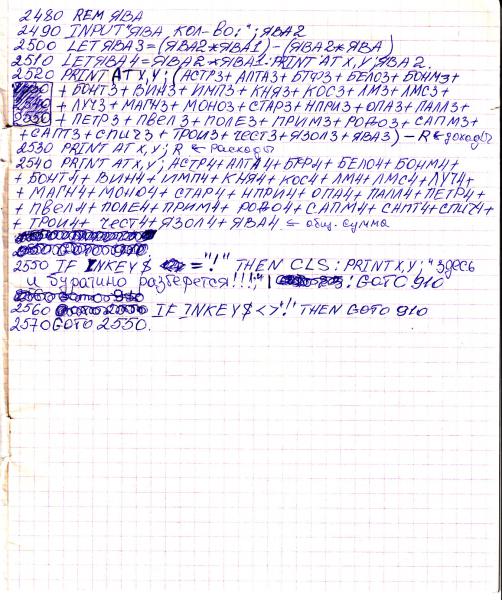 2480 REM ЯВА
2490 INPUT "ЯВА КОЛ-ВО:"; ЯВА2
2500 LET ЯВА3=(ЯВА2*ЯВА1)-(ЯВА2*ЯВА)
2510 LET ЯВА4=ЯВА2*ЯВА1:PRINT AT X,Y; ЯВА2.
2520 PRINT AT X,Y; (АСТР3+АЛТА3+БТФ3+БЕЛО3+БОНМ3+
+БОНТ3+ВИН3+ИМП3+КНЯ3+КОС3+ЛМ3+ЛМС3+
+ЛУЧ3+МАГН3+МОНО3+СТАР3+НПРИ3+ОПА3+ПАЛЛ3+
+ПЕТР3+ПВЕЛ3+ПОЛЕ3+ПРИМ3+РОДО3+САПМ3+
+САПТ3+СПИЧ3+ТРОИ3+ЧЕСТ3+ЯЗОЛ3+ЯВА3)-R ← доходы
2530 PRINT AT X,Y; R ← Расходы
2540 PRINT AT X,Y; АСТР4+АЛТА4+БТФ4+БЕЛО4+БОНМ4+
+БОНТ4+ВИН4+ИМП4+КНЯ4+КОС4+ЛМ4+ЛМС4+ЛУЧ4+
+МАГН4+МОНО4+СТАР4+НПРИ4+ОПА4+ПАЛЛ4+ПЕТР4+
+ПВЕЛ4+ПОЛЕ4+ПРИМ4+РОДО4+САПМ4+САПТ4+СПИЧ4+
+ТРОИ4+ЧЕСТ4+ЯЗОЛ4+ЯВА4 ← общ. сумма
2550 IF INKEY$ ="!" THEN CLS:PRINT X,Y; "Здесь
и буратино разберется!!!" :GOTO 910
2560 IF INKEY$<>"!" THEN GOTO 910
2570 GOTO 2550.